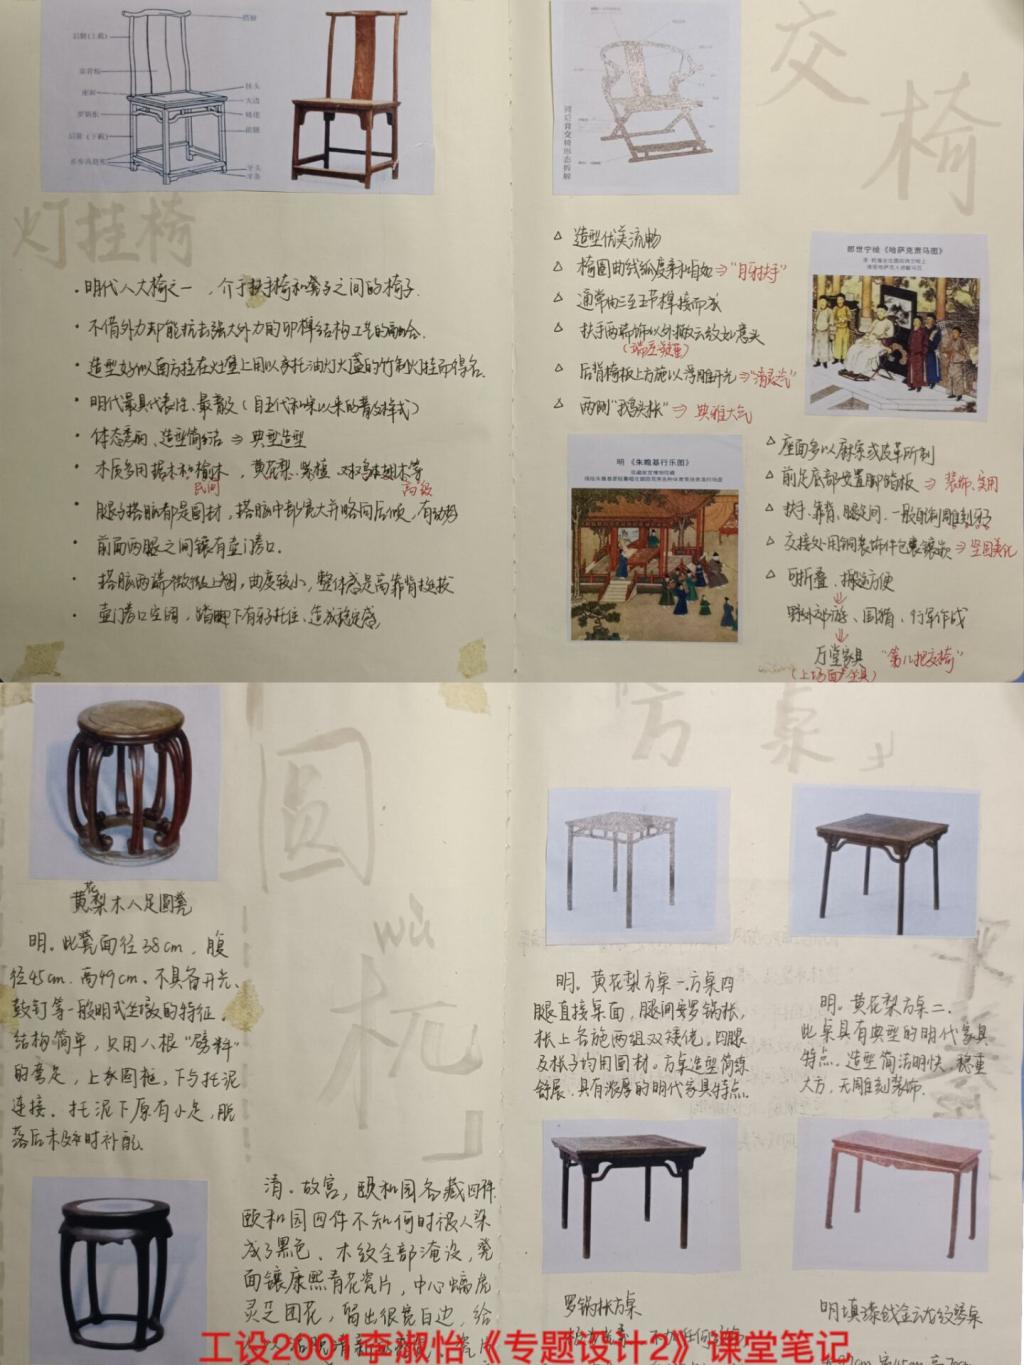 搭脑
后腿(上截)
靠背板
座面
抹头
大边
罗锅枨
矮佬
前腿
后腿(下截)
步步高赶枨
牙头
牙条
灯挂椅
· 明代八大椅之一，介于扶手椅和凳子之间的椅子.
· 不借外力却能抗击强大外力的卯榫结构工艺的融合.
· 造型好似南方挂在灶壁上用以承托油灯火盏的竹制灯挂而得名.
· 明代最具代表性、最普及(自五代和宋以来的普及样式)
· 体态秀丽、造型简洁 ⇒ 典型造型
· 木质多用榉木和榆木，黄花梨、紫檀、鸡翅木等
民间
高级
· 腿与搭脑都是圆材，搭脑中部宽大并略向后倾，有
· 前面两腿之间镶有壸门券口.
· 搭脑两端微微上翘，曲度较小，整体感是高靠背挺拔
· 壸门券口空阔，踏脚下有牙托住、造成稳定感
交椅
圆后背交椅形态拆解
△ 造型优美流畅
△ 椅圈曲线弧度柔和自如 ⇒ "月牙扶手"
△ 通常由三至五节榫接而成
△ 扶手两端饰以外撇云纹如意头
△ 后背椅板上方施以浮雕开光 ⇒ "清灵之气"
△ 两侧"鹅头枨" ⇒ 典雅大气
郎世宁绘《哈萨克贡马图》
明 《朱瞻基行乐图》
△ 座面多以麻索或皮革所制
△ 前足底部安置脚踏板 ⇒ 装饰、实用
△ 扶手、靠背、腿足间、一般
△ 交接处用铜装饰件包裹镶嵌 ⇒ 坚固美化
△ 可折叠、搬运方便
野外郊游、围猎、行军作战
厅堂家具 "第几把交椅"
(上场面坐具)
圆
wù
杌」
黄花梨木八足圆凳
明。此凳面径38cm，腹
径45cm.高49cm.不具备开光、
鼓钉等一般明式坐墩的特征.
结构简单，只用八根"劈料"
的弯足，上承圆框，下与托泥
连接。托泥下原有小足，脱
落后未及时补配.
清。故宫，颐和园各藏四件.
颐和园四件不知何时被人染
成了黑色、木纹全部淹没，凳
面镶康熙青花瓷片，中心螭虎
灵芝团花，留出很宽白边，给
「方桌」
明。黄花梨方桌一.方桌四
腿直接桌面，腿间安罗锅枨，
枨上各施两组双矮佬。四腿
及枨子均用圆材。方桌造型简练
舒展.具有浓厚的明代家具特点.
明。黄花梨方桌二.
此桌具有典型的明代家具
特点。造型简洁明快，稳重
大方，无雕刻装饰.
罗锅枨方桌
明填漆戗金云龙纹琴桌
工设2001李淑怡《专题设计2》课堂笔记